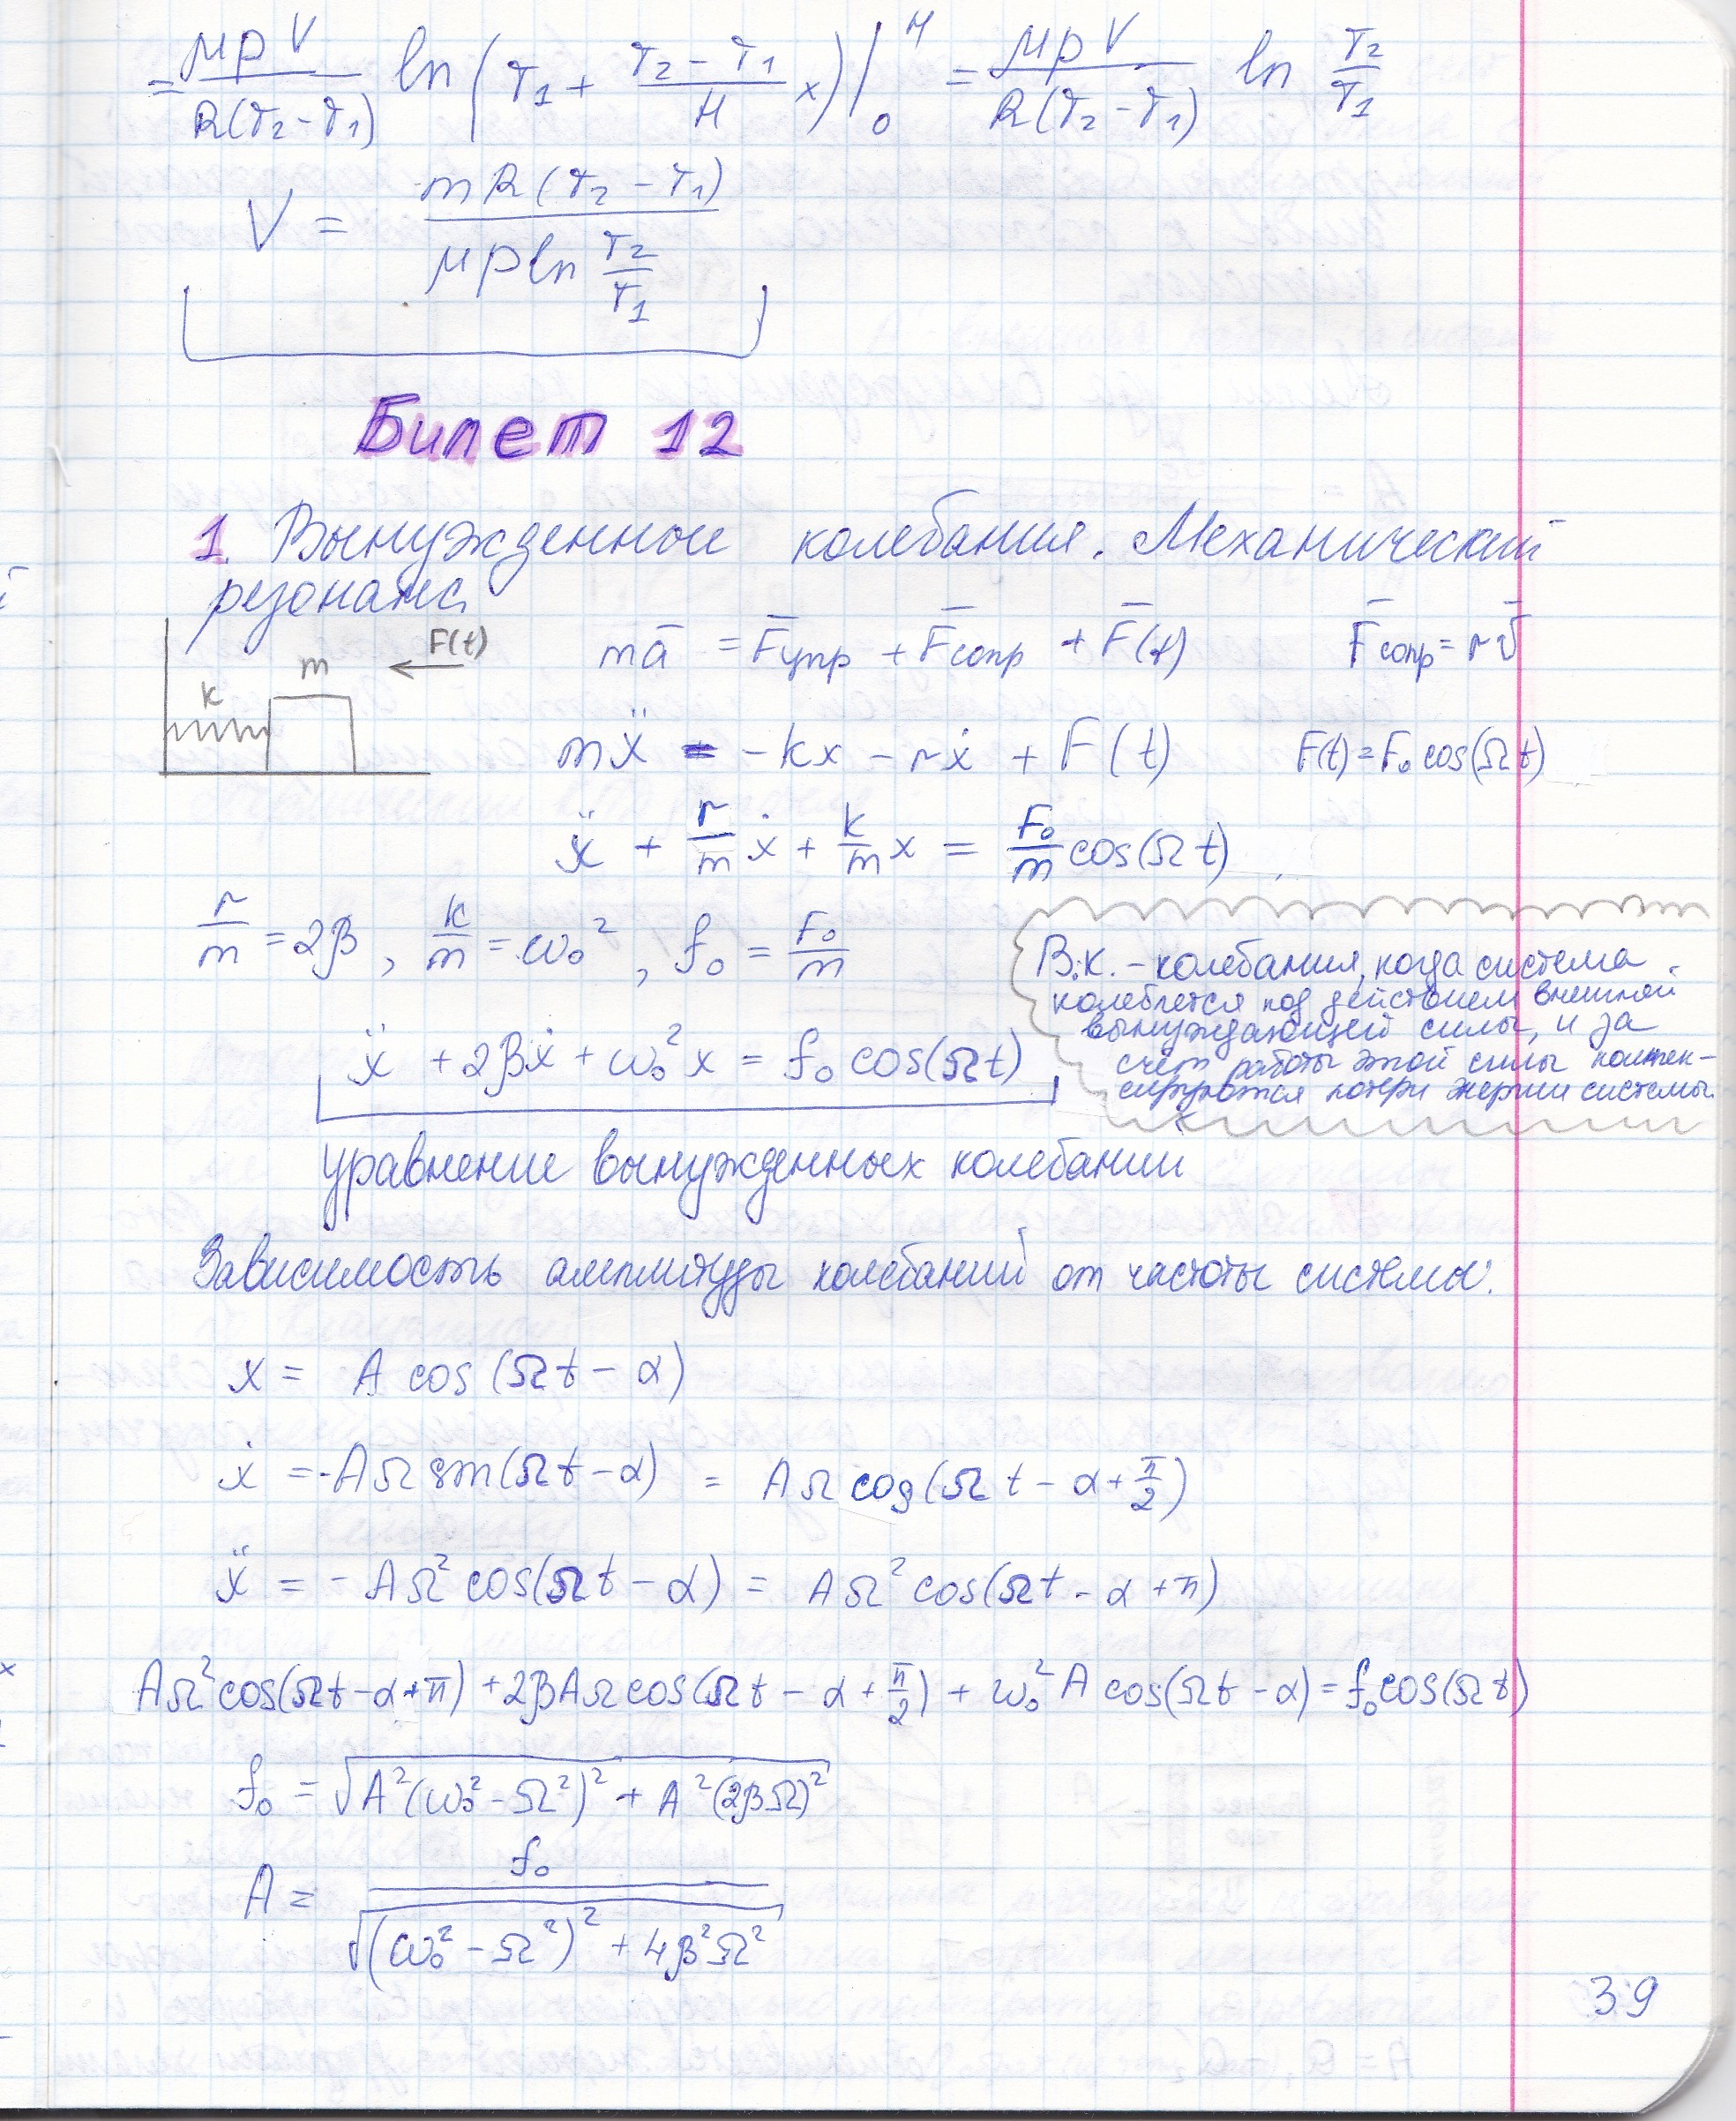 = μpV / R(T₂-T₁) ln(T₁ + T₂-T₁ / H x)|₀ᴴ = μpV / R(T₂-T₁) ln T₂/T₁
V = mR(T₂-T₁) / μp ln T₂/T₁
Билет 12
1. Вынужденные колебания. Механический
резонанс
k m F(t)
mā = F̄упр + F̄сопр + F̄(t) F̄сопр = rv̄
mẍ = -kx - rẋ + F(t) F(t) = F₀ cos(Ωt)
ẍ + r/m ẋ + k/m x = F₀/m cos(Ωt)
r/m = 2β, k/m = ω₀², f₀ = F₀/m
В.К. - колебания, когда система
колеблется под действием внешней
вынуждающей силы, и за
счёт работы этой силы компен-
сируются потери энергии системы.
ẍ + 2βẋ + ω₀²x = f₀ cos(Ωt)
уравнение вынужденных колебаний
Зависимость амплитуды колебаний от частоты системы.
x = A cos(Ωt - α)
ẋ = -AΩ sin(Ωt - α) = AΩ cos(Ωt - α + π/2)
ẍ = -AΩ² cos(Ωt - α) = AΩ² cos(Ωt - α + π)
AΩ² cos(Ωt - α + π) + 2βAΩ cos(Ωt - α + π/2) + ω₀² A cos(Ωt - α) = f₀ cos(Ωt)
f₀ = √(A²(ω₀² - Ω²)² + A²(2βΩ)²)
A = f₀ / √((ω₀² - Ω²)² + 4β²Ω²)
39